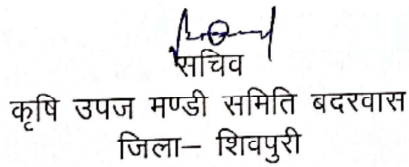 सचिव
कृषि उपज मण्डी समिति बदरवास
जिला– शिवपुरी